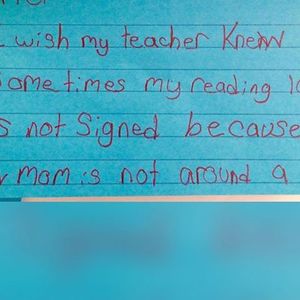 wish my teacher Knew
ometimes my reading lo
s not Signed because
mom is not around a